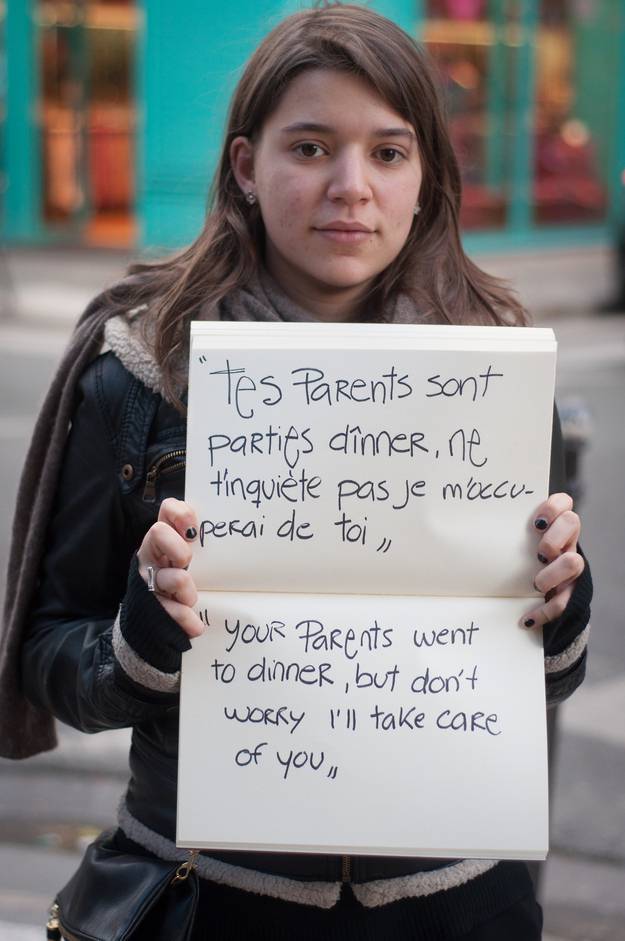 "Tes Parents sont
partiẹs dînner, ne
t'inquiète pas je m'occu-
perai de toi„
"Your Parents went
to dinner, but don't
worry I'll take care
of you„